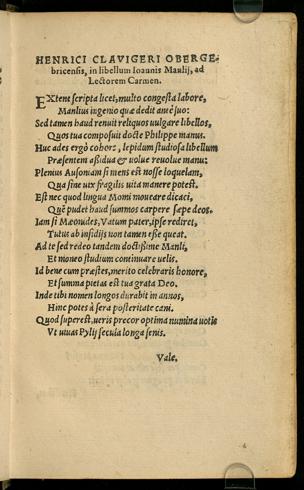 HENRICI CLAVIGERI OBERGE-
bricensis, in libellum Ioannis Maulij, ad
Lectorem Carmen.
EXtent scripta licet, multo congesta labore,
Manlius ingenio quæ dedit antè suo:
Sed tamen haud renuit reliquos vulgare libellos,
Quos tua composuit docte Philippe manus.
Huc ades ergò cohors, lepidum studiosa libellum
Præsentem aßidua & uolue reuolue manu:
Plenius Ausoniam si mens est nosse loquelam,
Qua sine uix fragilis uita manere potest.
Est nec quod lingua Momi moueare dicaci,
Què pudet haud summos carpere sæpe deos.
Iam si Mæonides, Vatum pater, ipse rediret,
Tutus ab insidijs non tamen esse queat.
Ad te sed redeo tandem doctißime Manli,
Et moneo studium continuare uelis.
Id bene cum præstes, merito celebraris honore,
Et summa pietas est tua grata Deo.
Inde tibi nomen longos durabit in annos,
Hinc potes à sera posteritate cani.
Quod superest, ueris precor optima numina uotis
Vt uiuas Pylij secula longa senis.
Vale.